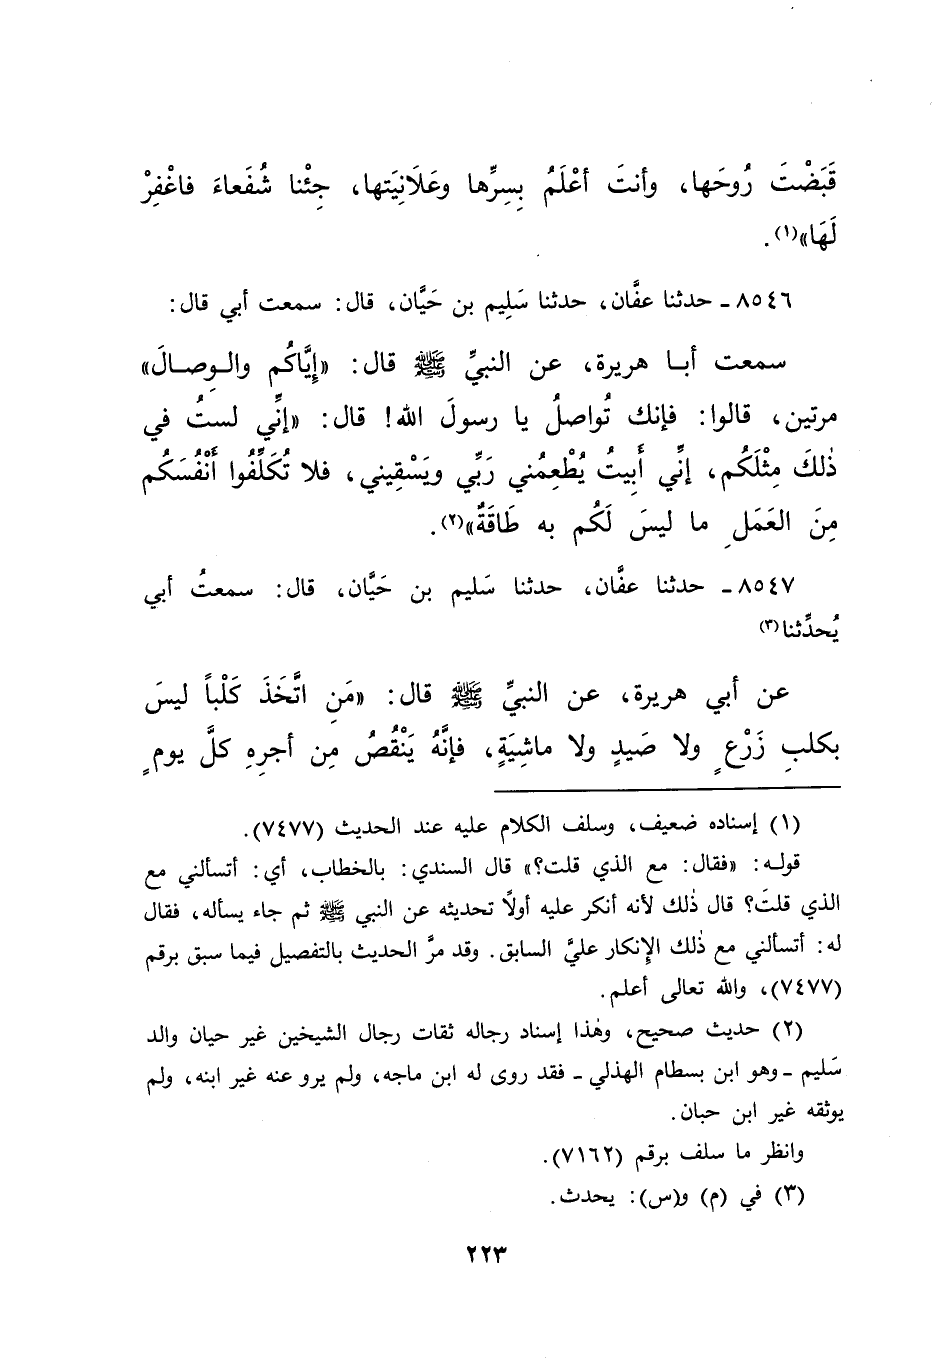 قَبَضْتَ رُوحَها، وأنتَ أعْلَمُ بِسِرِّها وعَلَانِيَتِها، جِئْنا شُفَعاءَ فاغْفِرْ
لَهَا»(١).
٨٥٤٦ ـ حدثنا عفَّان، حدثنا سَلِيم بن حَيَّان، قال: سمعت أبي قال:
سمعت أبا هريرة، عن النبيِّ ﷺ قال: «إِيَّاكُم والوِصالَ»
مرتين، قالوا: فإنك تُواصلُ يا رسولَ الله! قال: «إنِّي لستُ في
ذٰلكَ مِثْلَكُم، إنِّي أَبِيتُ يُطْعِمُني رَبِّي ويَسْقِيني، فلا تُكَلِّفُوا أَنْفُسَكُم
مِنَ العَمَلِ ما ليسَ لَكُم به طَاقَةٌ»(٢).
٨٥٤٧ ـ حدثنا عفَّان، حدثنا سَليم بن حَيَّان، قال: سمعتُ أبي
يُحدِّثنا(٣)
عن أبي هريرة، عن النبيِّ ﷺ قال: «مَنِ اتَّخَذَ كَلْباً ليسَ
بكلبِ زَرْعٍ ولا صَيدٍ ولا ماشِيَةٍ، فإنَّهُ يَنْقُصُ مِن أجرِهِ كلَّ يومٍ
(١) إسناده ضعيف، وسلف الكلام عليه عند الحديث (٧٤٧٧).
قوله: «فقال: مع الذي قلت؟» قال السندي: بالخطاب، أي: أتسألني مع
الذي قلتَ؟ قال ذٰلك لأنه أنكر عليه أولًا تحديثه عن النبي ﷺ ثم جاء يسأله، فقال
له: أتسألني مع ذٰلك الإنكار عليَّ السابق. وقد مرَّ الحديث بالتفصيل فيما سبق برقم
(٧٤٧٧)، والله تعالى أعلم.
(٢) حديث صحيح، وهٰذا إسناد رجاله ثقات رجال الشيخين غير حيان والد
سَليم ـ وهو ابن بسطام الهذلي ـ فقد روى له ابن ماجه، ولم يرو عنه غير ابنه، ولم
يوثقه غير ابن حبان.
وانظر ما سلف برقم (٧١٦٢).
(٣) في (م) و(س): يحدث.
٢٢٣